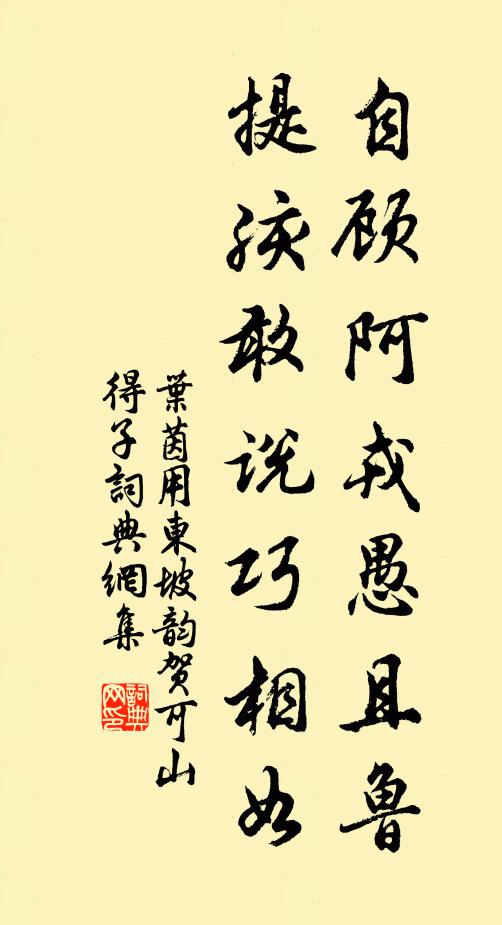 自顾阿戎愚且鲁
提孩敢说巧相如
葉茵用東坡韵贺可山
得子詞典網集
詞典
网印